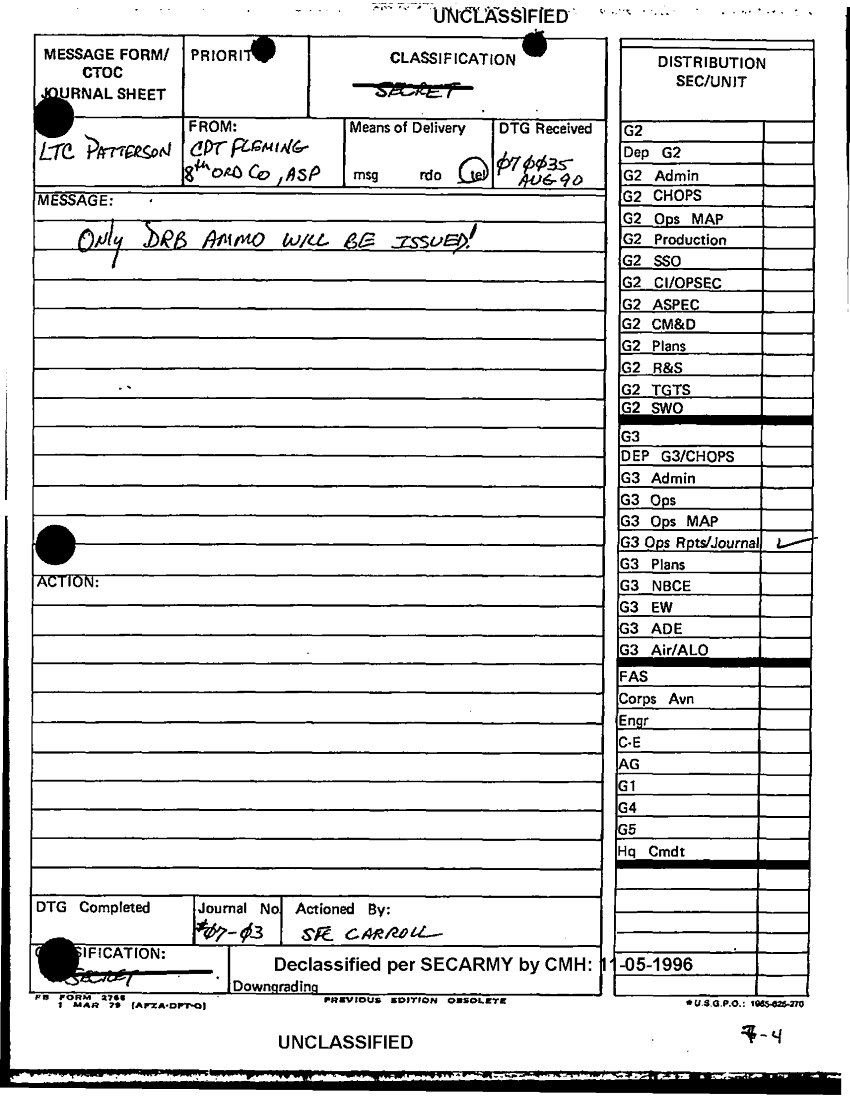 UNCLASSIFIED
MESSAGE FORM/
CTOC
JOURNAL SHEET
PRIORIT
CLASSIFICATION
SECRET
DISTRIBUTION
SEC/UNIT
LTC PATTERSON
FROM:
CPT FLEMING
8th ORD CO, ASP
Means of Delivery
msg rdo tel
DTG Received
070035
AUG 90
MESSAGE:
ONLY DRB AMMO WILL BE ISSUED!
ACTION:
G2
Dep G2
G2 Admin
G2 CHOPS
G2 Ops MAP
G2 Production
G2 SSO
G2 CI/OPSEC
G2 ASPEC
G2 CM&D
G2 Plans
G2 R&S
G2 TGTS
G2 SWO
G3
DEP G3/CHOPS
G3 Admin
G3 Ops
G3 Ops MAP
G3 Ops Rpts/Journal ✓
G3 Plans
G3 NBCE
G3 EW
G3 ADE
G3 Air/ALO
FAS
Corps Avn
Engr
C-E
AG
G1
G4
G5
Hq Cmdt
DTG Completed
Journal No.
#07-03
Actioned By:
SFC CARROLL
SIFICATION:
SECRET
Declassified per SECARMY by CMH: 11-05-1996
Downgrading
FB FORM 2768
1 MAR 79 (AFZA-DPT-O)
PREVIOUS EDITION OBSOLETE
*U.S.G.P.O.: 1985-625-270
UNCLASSIFIED
-4